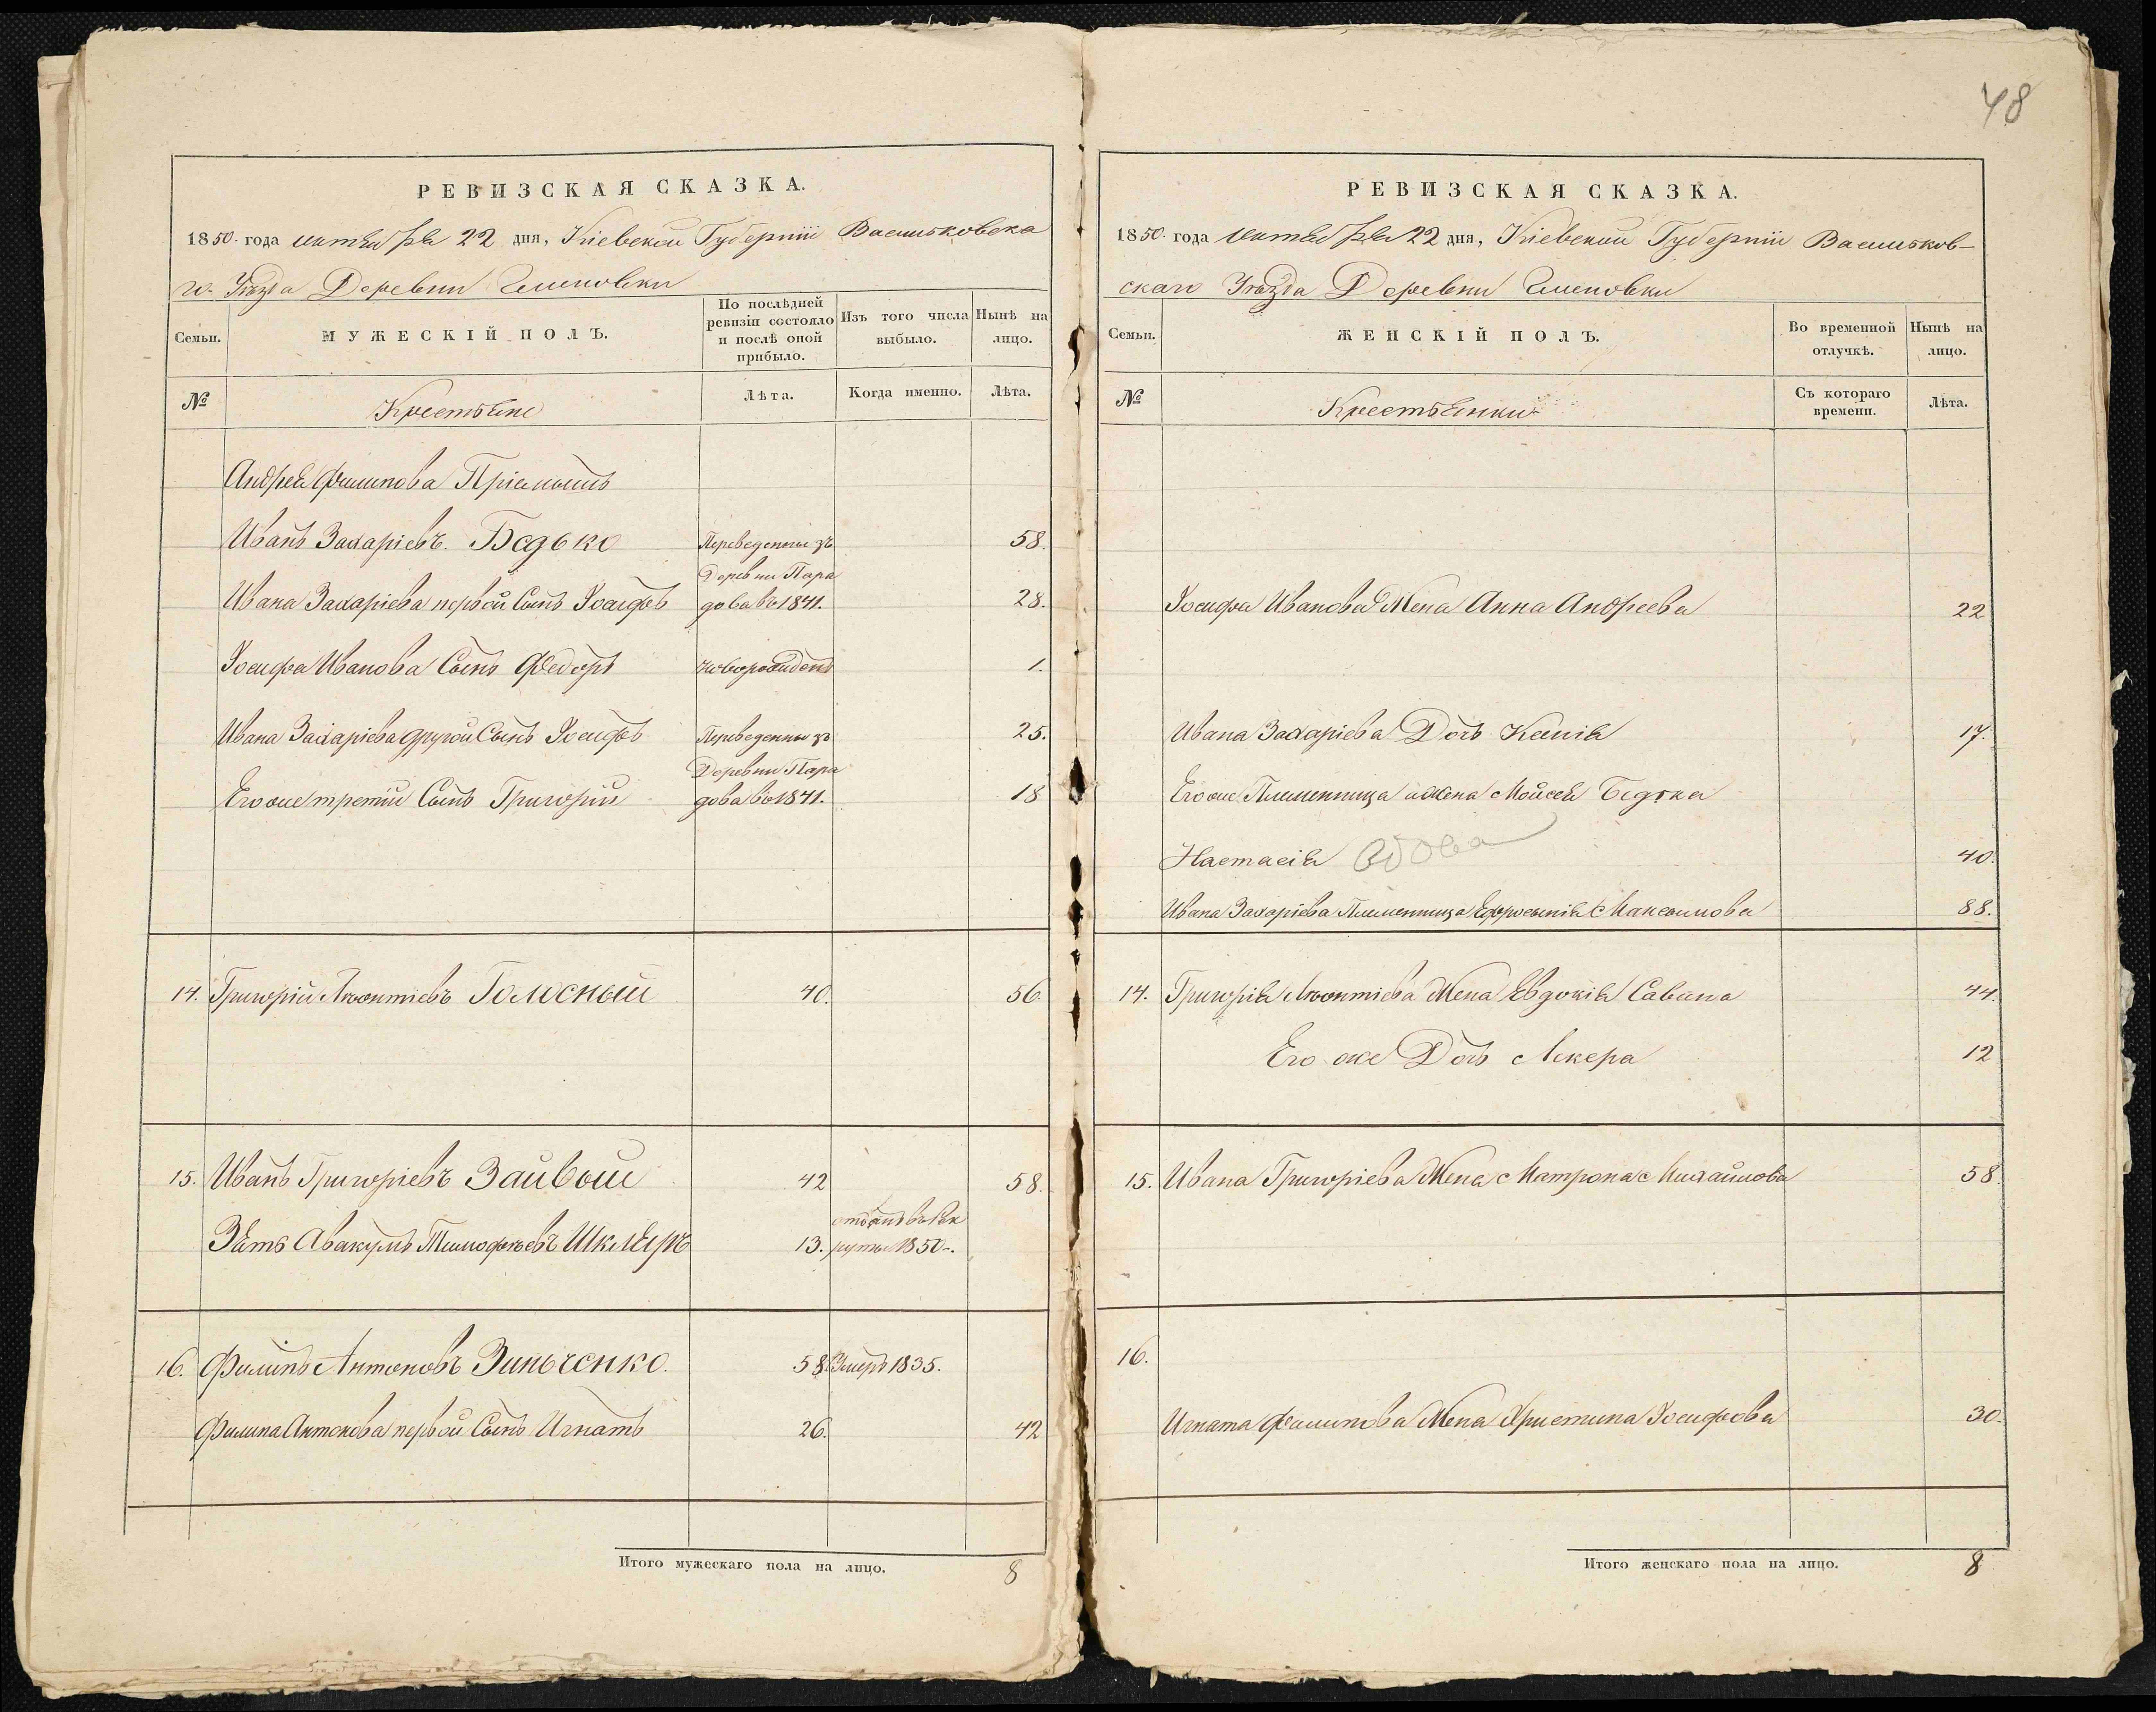 48
РЕВИЗСКАЯ СКАЗКА.
1850. года октября 22 дня, Кіевской Губерніи Васильковска
го Уѣзда Деревни
Семьи.
МУЖЕСКІЙ ПОЛЪ.
По послѣдней ревизіи состояло и послѣ оной прибыло.
Изъ того числа выбыло.
Нынѣ на лицо.
№
Крестьяне
Лѣта.
Когда именно.
Лѣта.
Андрея Филипова Пріемышъ
Иванъ Захаріевъ Бедько Переведенны зъ 58.
Деревни Пара
Ивана Захаріева первой Сынъ Іосифъ дова въ 1841. 28.
Іосифа Иванова Сынъ Федоръ новорожденъ 1.
Ивана Захаріева другой Сынъ Іосифъ Переведенны зъ 25.
Деревни Пара
Его же третій Сынъ Григорій дова въ 1841. 18
14. Григорій Леонтіевъ Голосный 40. 56.
15. Иванъ Григоріевъ Зайвый 42 58.
отданъ въ Рек
Зять Авакумъ Тимофѣевъ Шкляръ 13. руты 1850.
16. Филипъ Антоновъ Зинченко 58. Умеръ 1835.
Филипа Антонова первой Сынъ Игнатъ 26. 42
Итого мужескаго пола на лицо. 8
РЕВИЗСКАЯ СКАЗКА.
1850. года октября 22 дня, Кіевской Губерніи Васильков-
скаго Уѣзда Деревни
Семьи.
ЖЕНСКІЙ ПОЛЪ.
Во временной отлучкѣ.
Нынѣ на лицо.
№
Крестьянки
Съ котораго времени.
Лѣта.
Іосифа Иванова Жена Анна Андреева 22
Ивана Захаріева Дочь Ксенія 17.
Его же Племенница а жена Мойсея Бедька
Настасія вдова 40.
Ивана Захаріева Племенница Ефросинія Максимова 88.
14. Григорія Леонтіева Жена Евдокія Савина 44.
Его же Дочь 12
15. Ивана Григоріева Жена Матрона Михайлова 58.
16.
Игната Филипова Жена Христина Іосифова 30.
Итого женскаго пола на лицо. 8